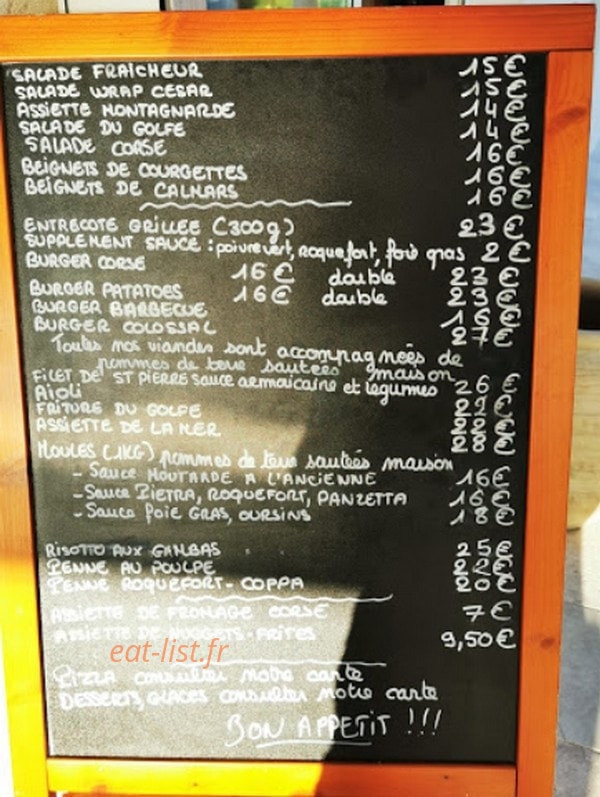 SALADE FRAICHEUR 15€
SALADE WRAP CESAR 15€
ASSIETTE MONTAGNARDE 14€
SALADE DU GOLFE 14€
SALADE CORSE 16€
BEIGNETS DE COURGETTES 16€
BEIGNETS DE CALMARS 16€
ENTRECOTE GRILLEE (300g) 23€
SUPPLEMENT SAUCE : poivre vert, roquefort, foie gras 2€
BURGER CORSE 16€ double 23€
BURGER PATATOES 16€ double 23€
BURGER BARBECUE 16€
BURGER COLOSSAL 27€
Toutes nos viandes sont accompagnées de
pommes de terre sautées maison
FILET DE ST PIERRE sauce armoricaine et legumes 26€
Aioli 22€
FRITURE DU GOLFE 22€
ASSIETTE DE LA MER 28€
MOULES (1KG) pommes de terre sautées maison
- Sauce MOUTARDE A L'ANCIENNE 16€
- Sauce PIETRA, ROQUEFORT, PANZETTA 16€
- Sauce foie GRAS, OURSINS 18€
RISOTTO AUX GAMBAS 25€
PENNE AU POULPE 22€
PENNE ROQUEFORT - COPPA 20€
ASSIETTE DE FROMAGE CORSE 7€
ASSIETTE DE NUGGETS - FRITES 9,50€
eat-list.fr
PIZZA consulter notre carte
DESSERTS, GLACES consulter notre carte
BON APPETIT !!!